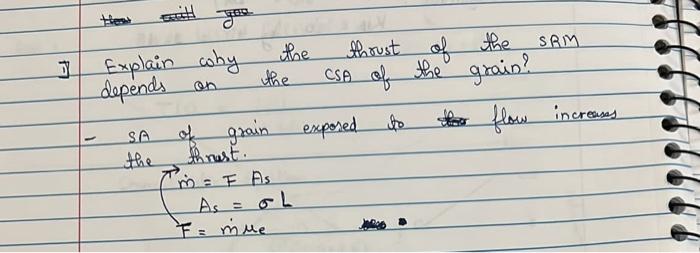 1) Explain why the thrust of the SAM
depends on the CSA of the grain?
- SA of grain exposed to flow increases
the thrust.
ṁ = F As
As = σ L
F = ṁ ue